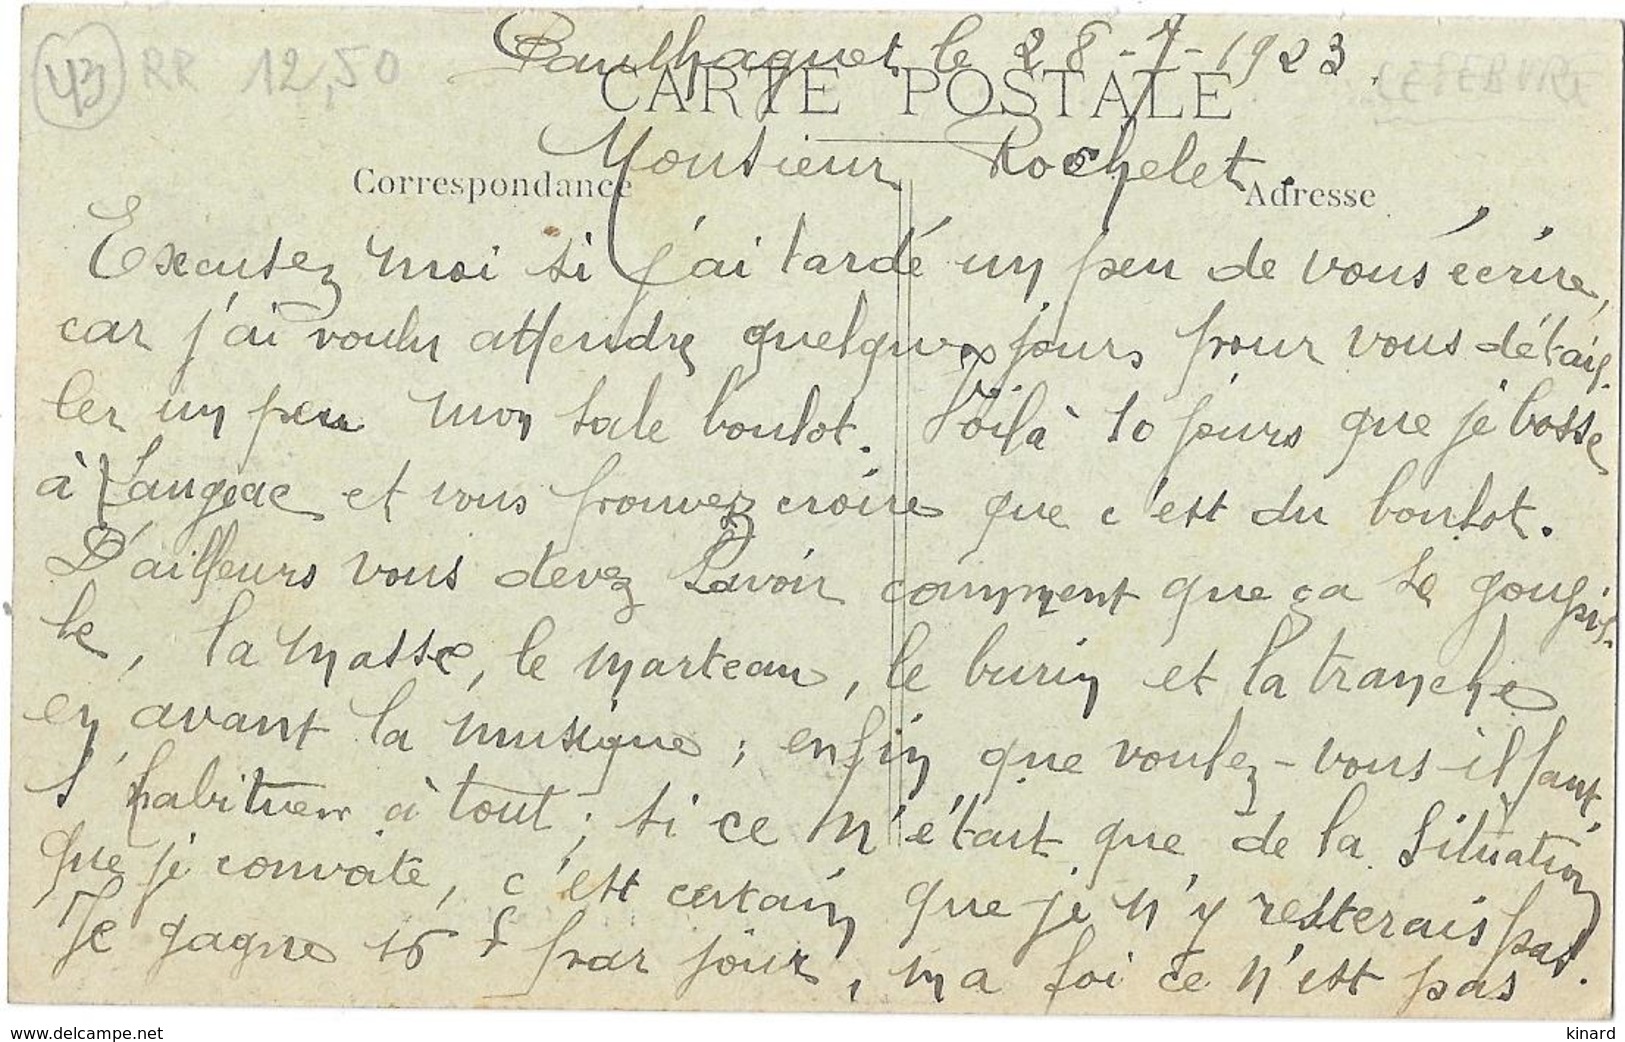 43 RR 12,50 LEFEBVRE
Paulhaguet le 28-7-1923.
CARTE POSTALE
Monsieur Rochelet.
Correspondance Adresse
Excusez moi si j'ai tardé un peu de vous écrire,
car j'ai voulu attendre quelques jours pour vous détail-
ler un peu mon sale boulot. Voilà 10 jours que je bosse
à Langeac et vous pouvez croire que c'est du boulot.
D'ailleurs vous devez savoir comment que ça se goupil-
le, la masse, le marteau, le burin et la tranche
en avant la musique ; enfin que voulez-vous il faut
s'habituer à tout ; si ce n'était que de la situation
que je convoite, c'est certain que je n'y resterais pas.
Je gagne 16 f par jour, ma foi ce n'est pas
www.delcampe.net kinard